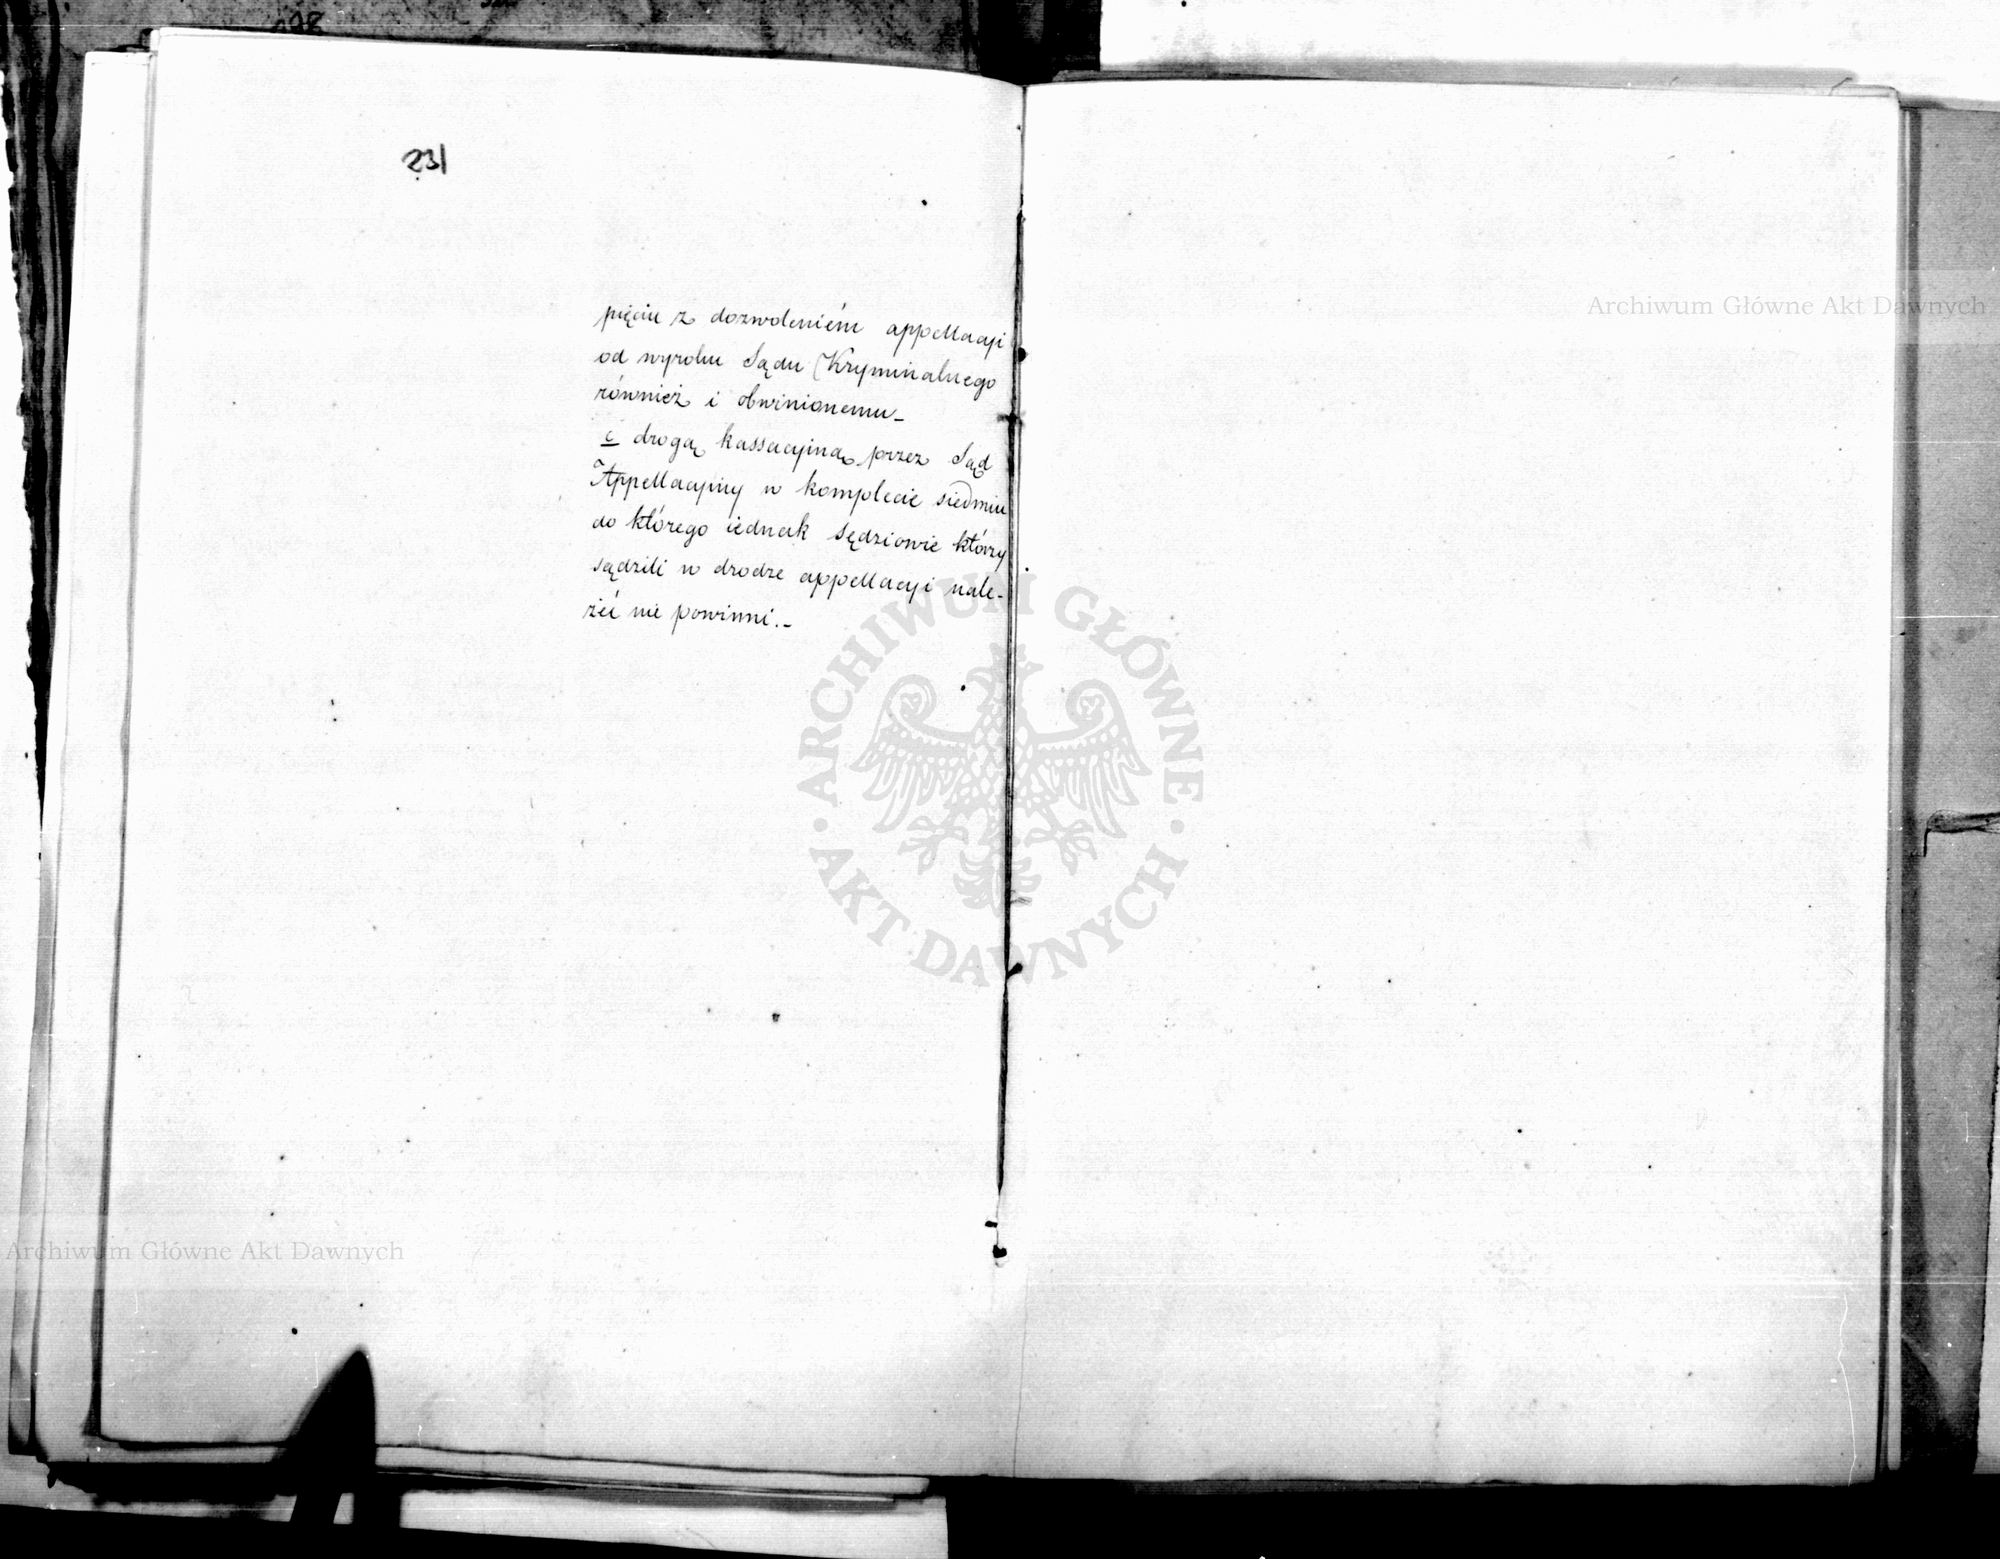 231
pięciu z dozwoleniém appellacyi
od wyroku Sądu Kryminalnego
również i obwinionemu_
c drogą kassacyiną przez Sąd
Appellacyiny w komplecie siedmiu
do którego iednak Sędziowie którzy
sądzili w drodze appellacyi nale-
żéć nie powinni._
Archiwum Główne Akt Dawnych
ARCHIWUM GŁÓWNE
AKT DAWNYCH
Archiwum Główne Akt Dawnych